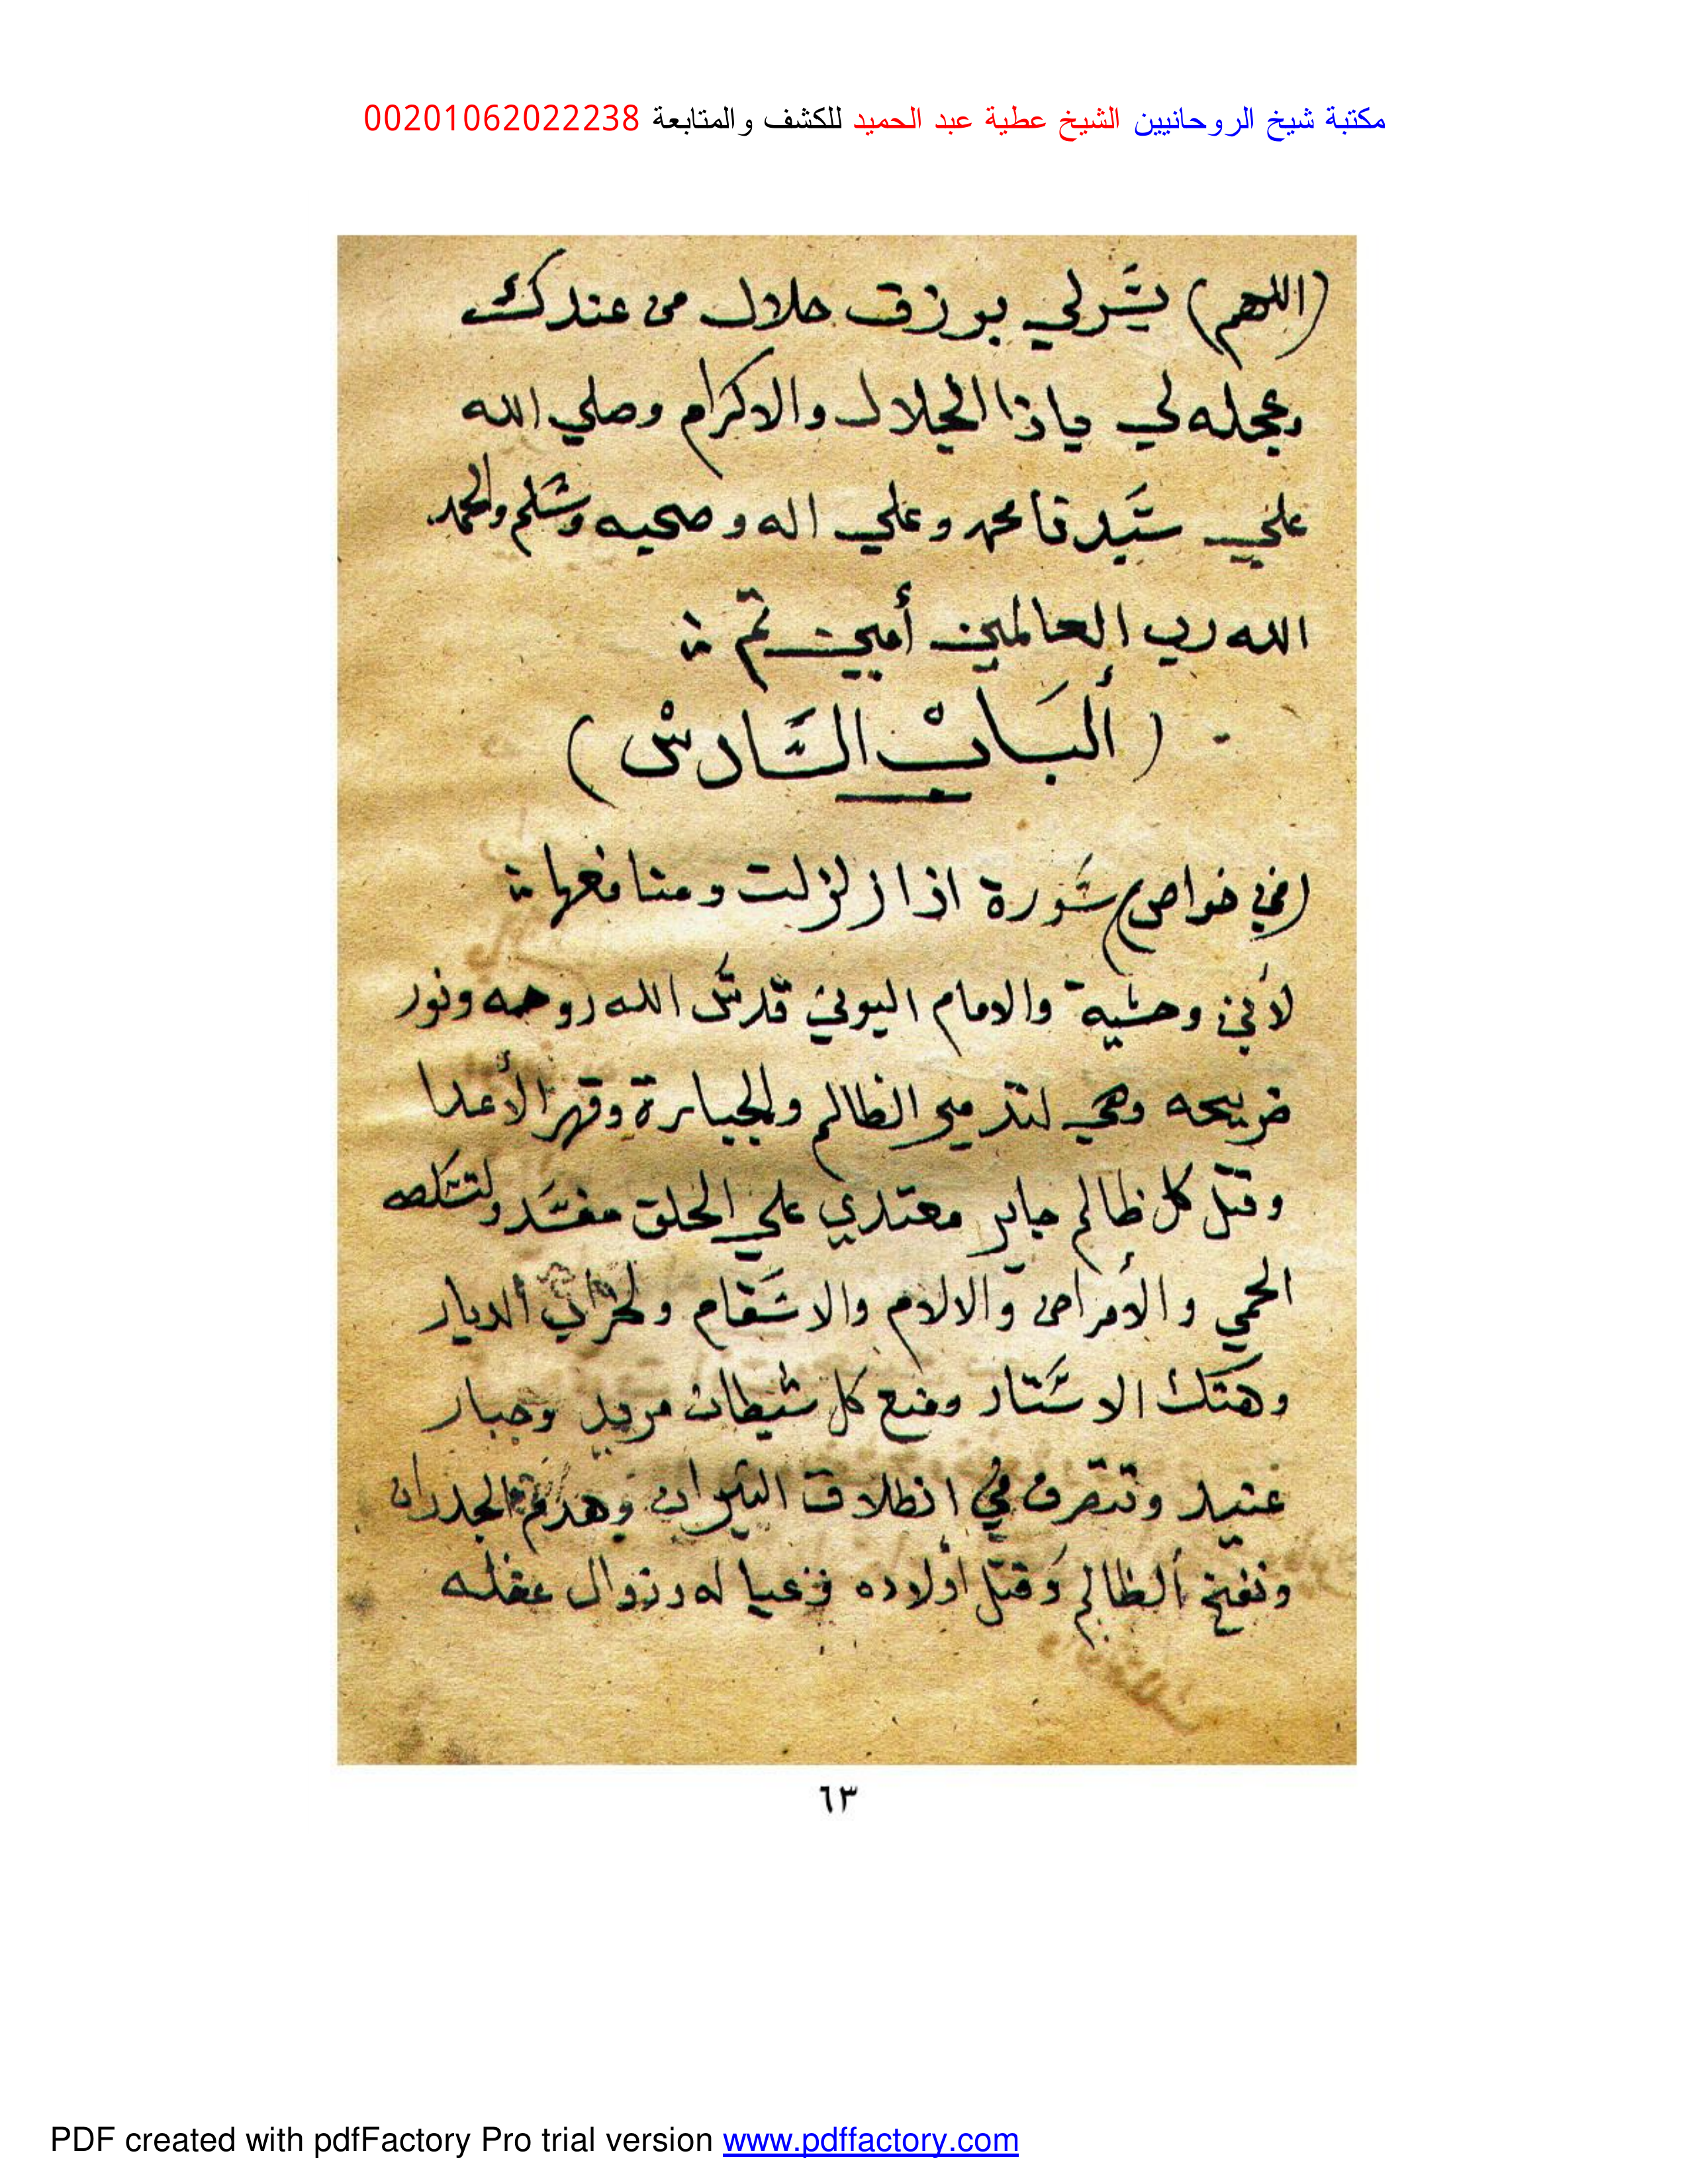 مكتبة شيخ الروحانيين الشيخ عطية عبد الحميد للكشف والمتابعة 00201062022238
(اللهم) يسرلي برزق حلال من عندك
وعجله لي ياذا الجلال والاكرام وصلي الله
علي سيدنا محمد وعلي اله وصحبه وسلم والحمد
الله رب العالمين أمين تم
(ألبَابْ السَّادسْ)
(في خواص) سورة اذا زلزلت ومنافعها
لأبي وحشية والامام البوني قدس الله روحه ونور
ضريحه وهي لتدمير الظالم والجبابرة وقهر الأعدا
وقتل كل ظالم جاير معتدي علي الخلق مفسد ولتسلطه
الحمي والأمراض والالام والاسقام ولخراب ألديار
وهتك الاستار ومنع كل شيطان مريد وجبار
عنيد وتتصرف في انطلاق النيران وهدم الجدران
ونفخ ألظالم وقتل أولاده وعياله وزوال عقله
٦٣
PDF created with pdfFactory Pro trial version www.pdffactory.com